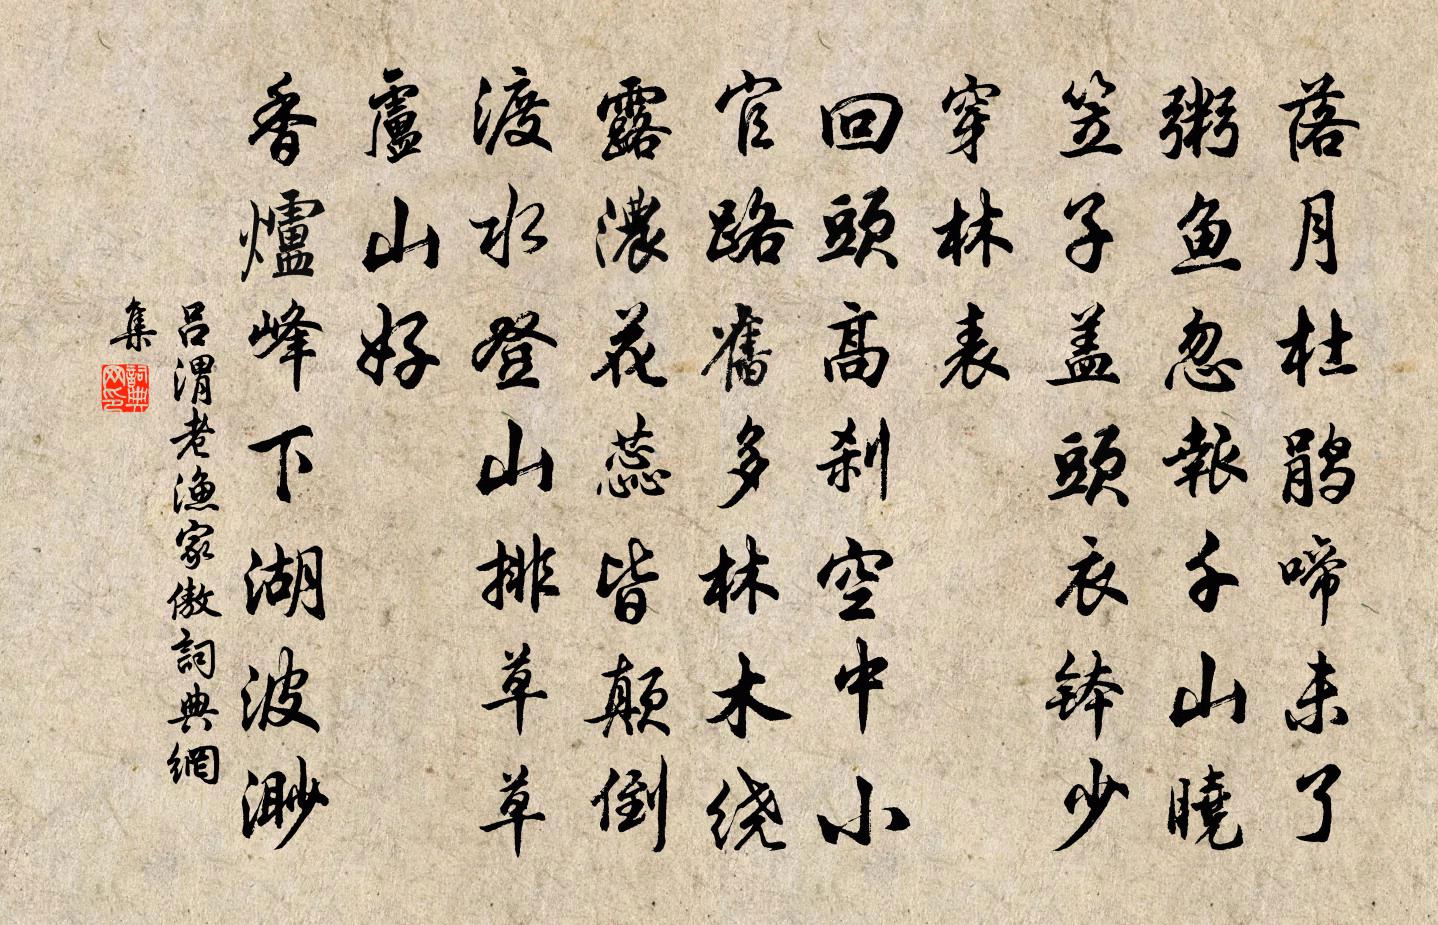 落月杜鹃啼未了
粥鱼忽報千山曉
笠子盖頭衣钵少
穿林表
回頭高刹空中小
官路舊多林木绕
露濃花蕊皆颠倒
渡水登山排草草
廬山好
香爐峰下湖波渺
吕渭老漁家傲詞典網
集
詞典網印